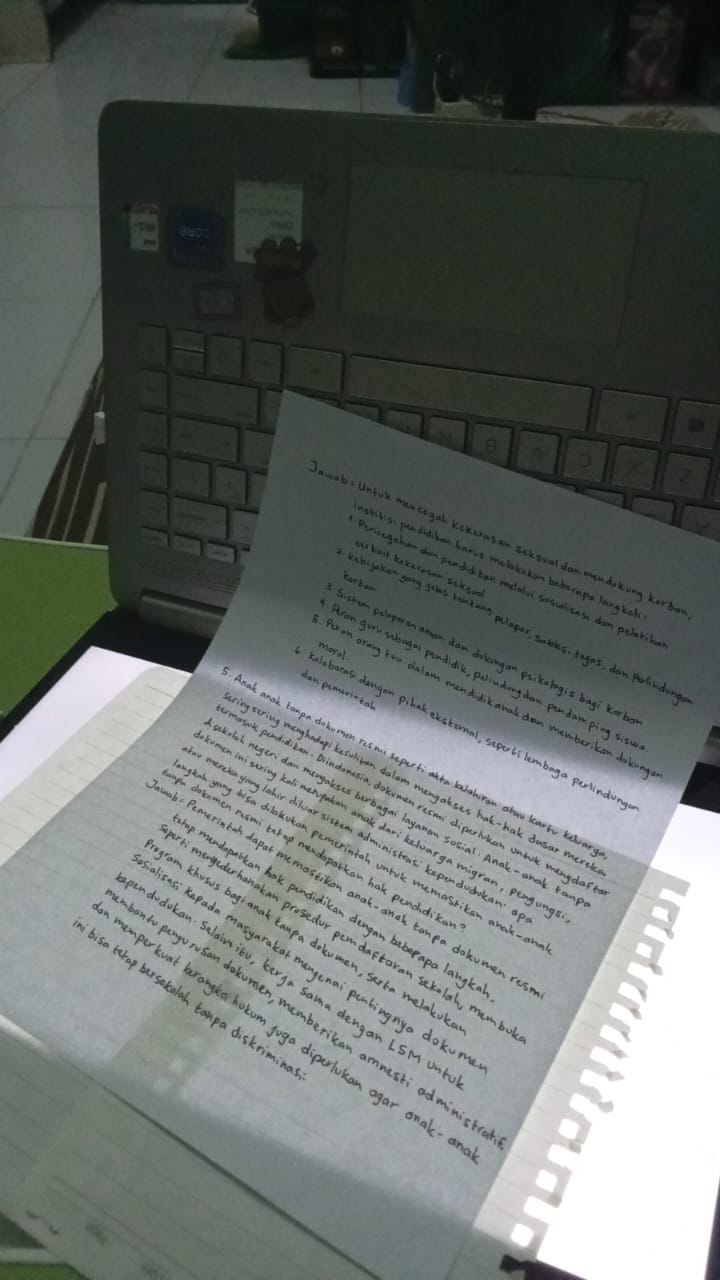 CORE
N
B
V
C
X
Z
Jawab: Untuk mencegah kekerasan seksual dan mendukung korban,
institisi pendidikan harus melakukan beberapa langkah:
1. Pencegahan dan pendidikan melalui sosialisasi dan pelatihan
terkait kekerasan seksual
2. Kebijakan yang jelas tentang pelapor, sanksi tegas, dan Perlindungan
korban
3. Sistem pelaporan aman dan dukungan psikologis bagi korban
4. Peran guru sebagai pendidik, pelindung dan pendamping siswa.
5. Peran orang tua dalam mendidik anak dan memberikan dukungan
moral
6. Kolaborasi dengan pihak eksternal, seperti lembaga perlindungan
dan pemerintah
5. Anak anak tanpa dokumen resmi seperti akta kelahiran atau kartu keluarga,
Sering sering menghadapi kesulitan dalam mengakses hak-hak dasar mereka
termasuk pendidikan. Diindonesia, dokumen resmi diperlukan untuk mengdaftar
disekolah negeri dan mengakses berbagai layanan sosial. Anak-anak tanpa
dokumen ini sering kali merupakan anak dari keluarga migran, pengungsi,
atau mereka yang lahir diluar sistem administrasi kependudukan. apa
langkah yang bisa dilakukan pemerintah untuk memastikan anak-anak
tanpa dokumen resmi tetap mendapatkan hak pendidikan?
Jawab: Pemerintah dapat memastikan anak-anak tanpa dokumen resmi
tetap mendapatkan hak pendidikan dengan beberapa langkah,
Seperti mengederhanakan prosedur pendaftaran sekolah, membuka
Program khusus bagi anak tanpa dokumen, serta melakukan
Sosialisasi kepada masyarakat mengenai pentingnya dokumen
kependudukan. Selain itu, kerja sama dengan LSM untuk
membantu pengurusan dokumen, memberikan amnesti administratif,
dan memperkuat kerangka hukum juga diperlukan agar anak-anak
ini bisa tetap bersekolah tanpa diskriminasi.